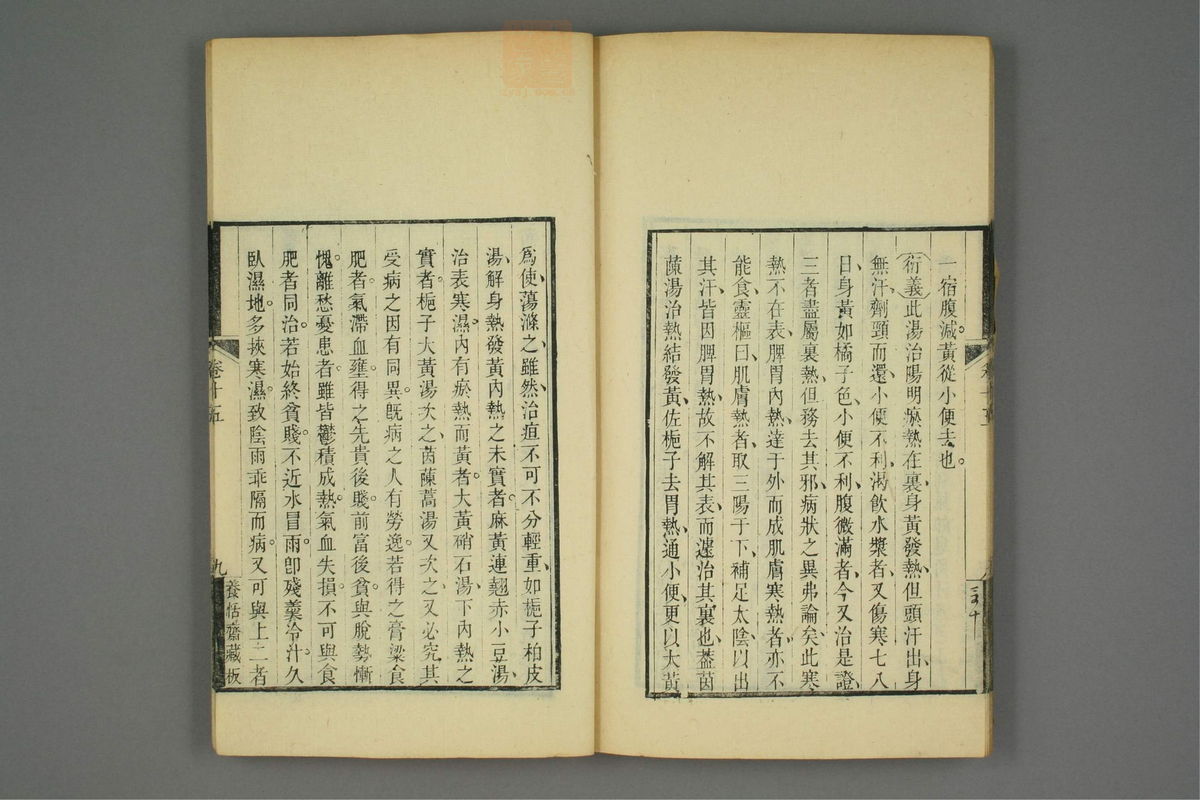 一宿腹減黃從小便去也
衍義此湯治陽明瘀熱在裏身黃發熱但頭汗出身
無汗劑頸而還小便不利渴飲水漿者又傷寒七八
日身黃如橘子色小便不利腹微滿者今又治是證
三者盡屬裏熱但務去其邪病狀之異弗論矣此寒
熱不在表脾胃內熱達于外而成肌膚寒熱者亦不
能食靈樞曰肌膚熱者取三陽于下補足太陰以出
其汗皆因脾胃熱故不解其表而遽治其裏也葢茵
蔯湯治熱結發黃佐梔子去胃熱通小便更以大黃
三十
為使蕩滌之雖然治疸不可不分輕重如梔子柏皮
湯解身熱發黃內熱之未實者麻黃連翹赤小豆湯
治表寒濕內有瘀熱而黃者大黃硝石湯下內熱之
實者梔子大黃湯次之茵蔯蒿湯又次之又必究其
受病之因有同異旣病之人有勞逸若得之膏粱食
肥者氣滯血壅得之先貴後賤前富後貧與脫勢慚
愧離愁憂患者雖皆鬱積成熱氣血失損不可與食
肥者同治若始終貧賤不近水冒雨卽殘羹冷汁久
臥濕地多挾寒濕致陰雨乖隔而病又可與上二者
卷十五
九
養恬齋藏板